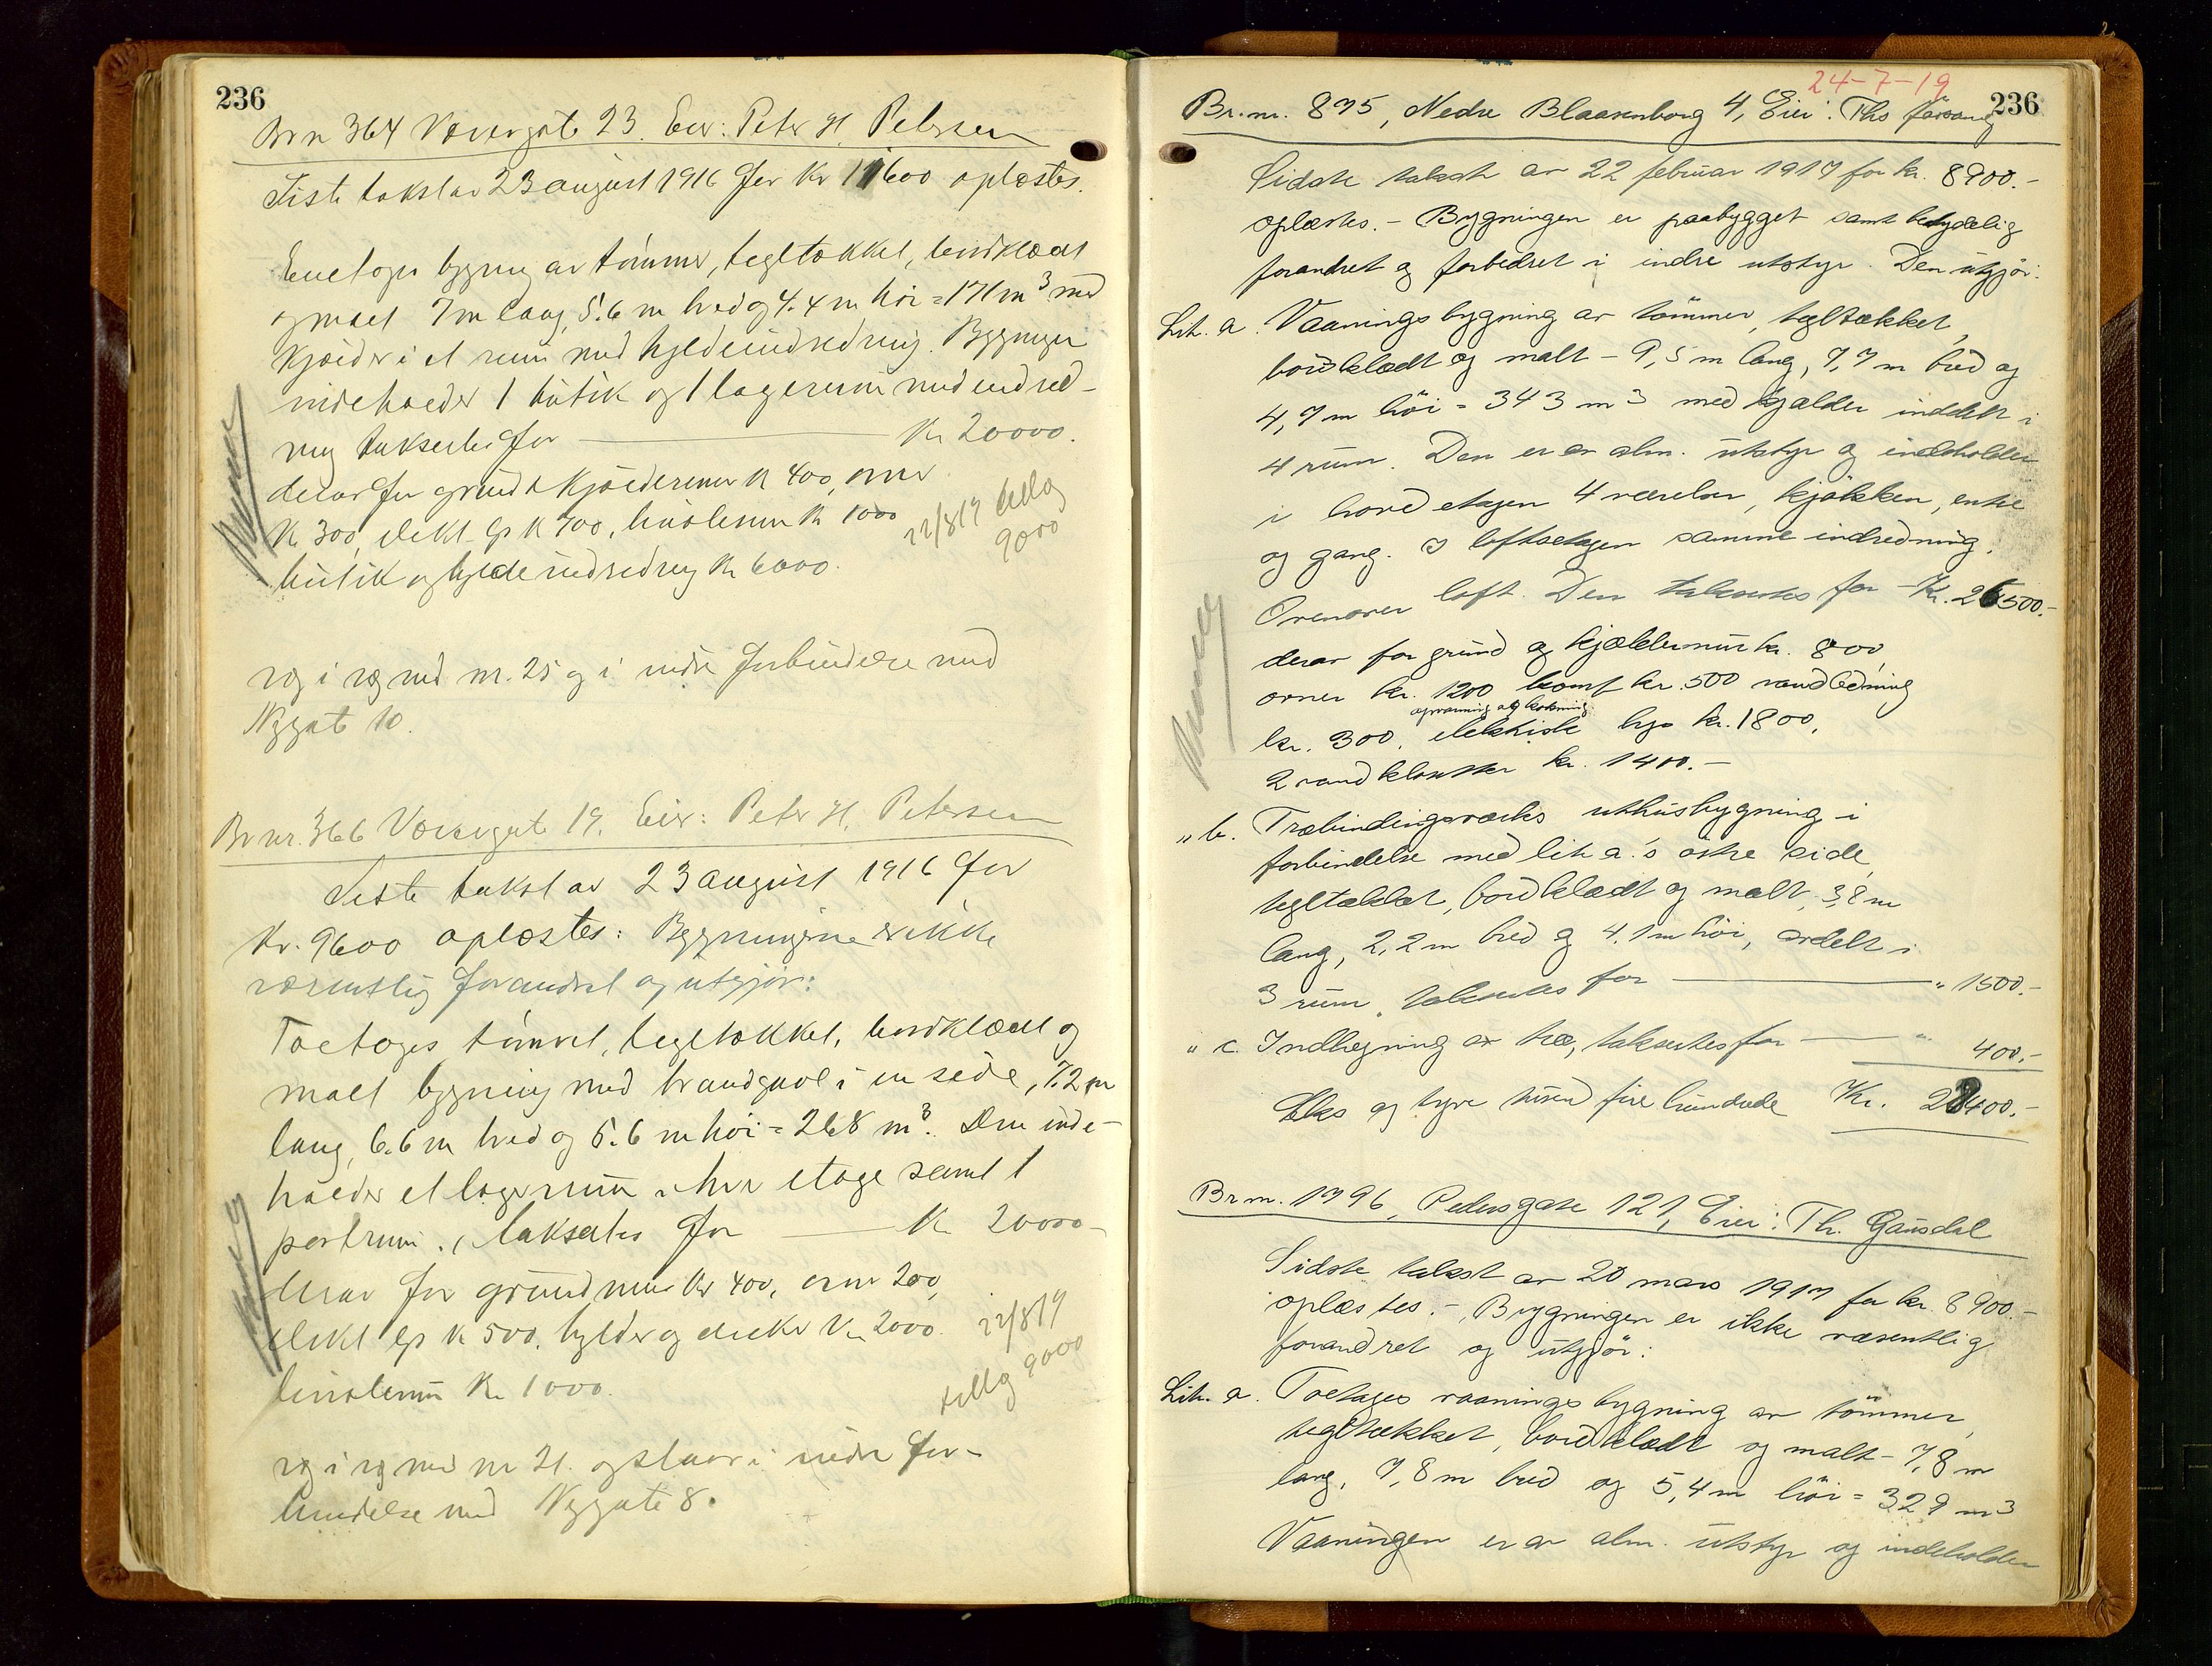 236
Br nr 364 Verksgate 23. Eier: Peter H. Petersen
Siste takst av 23 august 1916 for kr 11600 oplæstes.
Enetages bygning av tømmer, tegltækket, bordklædt
og malt 7 m lang, 5.6 m bred og 4.4 m høi = 171 m³ med
kjælder i et rum med hyldeindredning. Bygningen
indeholder 1 butik og 1 lagerrum med indred-
ning takseres for Kr 20000.
derav for grund & kjældermur K 400, ovner
K 300, elekt. lys K 700, linoleum K 1000
butik og hyldeindredning K 6000.
22/8 19 tillæg
9000
ryg i ryg med nr. 25 og i indre forbindelse med
Nygate 10.
Br nr. 366 Verksgate 19. Eier: Peter H. Petersen
Siste takst av 23 august 1916 for
Kr. 9600 oplæstes: Bygningerne er ikke
væsentlig forandret og utgjør:
Toetages tømret, tegltækket, bordklædt og
malt bygning med brandgavl i en side, 7.2 m
lang, 6.6 m bred og 5.6 m høi = 268 m³. Den inde-
holder et lagerrum i hver etage samt 1
portrum, takseres for K 20000-
derav for grundmur Kr 400, ovn 200,
elekt lys K 500, hylder og diske Kr 2000.
linoleum Kr 1000.
22/8 19
tillæg 9000
ryg i ryg med nr 21. og staar i indre for-
bindelse med Nygate 8.
24-7-19
236
Br. nr. 875, Nedre Blaasenborg 4, Eier: Ths
Sidste takst av 22 februar 1917 for kr. 8900.-
oplæstes.- Bygningen er paabygget samt betydelig
forandret og forbedret i indre utstyr. Den utgjör:
Lit. a. Vaaningsbygning av tömmer, tegltækket,
bordklædt og malt - 9,5 m lang, 7,7 m bred og
4,7 m höi = 343 m³ med kjælder inddelt i
4 rum. Den er av alm. utstyr og indeholder
i hovedetagen 4 værelser, kjökken, entre
og gang. I loftsetagen samme indredning.
Ovenover loft. Den takseres for - Kr. 26500.-
derav for grund og kjældermur kr. 800,
ovner kr. 1200 komf kr. 500 vandledning
opvarming og kokning.
kr. 300, elektrisk lys kr. 1800,
2 vandklosetter kr. 1400.-
" b. Træbindingsverks uthusbygning i
forbindelse med lit a.'s östre side,
tegltækket, bordklædt og malt, 3,8 m
lang, 2,2 m bred og 4,1 m höi, avdelt i
3 rum, takseres for " 1500.-
" c. Indhegning av træ, takseres for " 400.-
og tyve tusend fire hundrede Kr. 28400.-
Br nr. 1796, Pedersgate 121, Eier: Th. Gausdal
Sidste takst av 20 mars 1917 for kr. 8900.-
oplæstes.- Bygningen er ikke væsentlig
forandret og utgjör:
Lit. a. Toetages vaaningsbygning av tömmer,
tegltækket, bordklædt og malt - 7,8 m
lang, 7,8 m bred og 5,4 m höi = 329 m³
Vaaningen er av alm. utstyr og indeholder